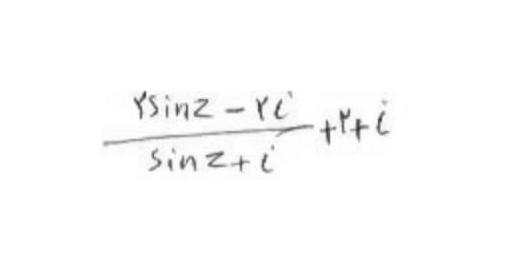 ۲sinz - ۲i
sinz + i
+۳+i